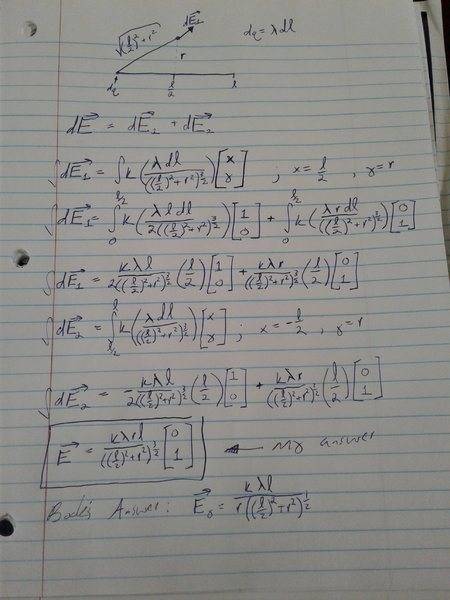 √((l/2)²+r²) dE₁→ dq = λdl
r
dq l/2 l
dE→ = dE₁→ + dE₂→
∫dE₁→ = ∫k(λdl/((l/2)²+r²)^(3/2)) [x y] ; x = l/2 , y = r
∫dE₁→ = ∫₀^(l/2) k(λl dl/2((l/2)²+r²)^(3/2)) [1 0] + ∫₀^(l/2) k(λr dl/((l/2)²+r²)^(3/2)) [0 1]
∫dE₁→ = kλl/2((l/2)²+r²)^(3/2) (l/2) [1 0] + kλr/((l/2)²+r²)^(3/2) (l/2) [0 1]
∫dE₂→ = ∫_(l/2)^l k(λdl/((l/2)²+r²)^(3/2)) [x y] ; x = -l/2 , y = r
∫dE₂→ = -kλl/2((l/2)²+r²)^(3/2) (l/2) [1 0] + kλr/((l/2)²+r²)^(3/2) (l/2) [0 1]
E→ = kλrl/((l/2)²+r²)^(3/2) [0 1] ← my answer
Book's Answer: E→y = kλl/r((l/2)²+r²)^(1/2)